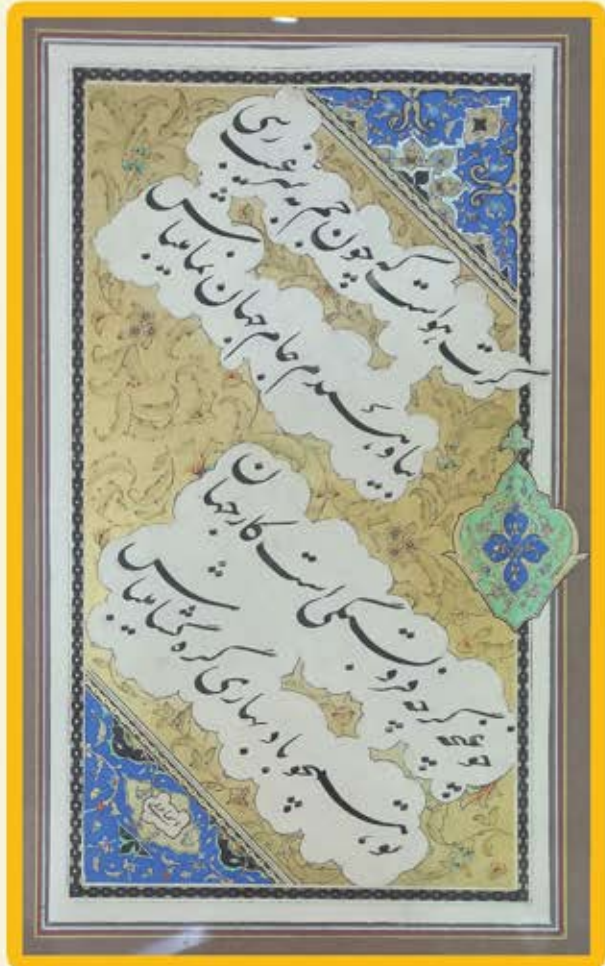 گرت هواست که چون جم به سر غیب رسی
بیا و همدم جام جهان نما میباش
چو غنچه گرچه فروبستگی است کار جهان
تو همچو باد بهاری گره گشا میباش